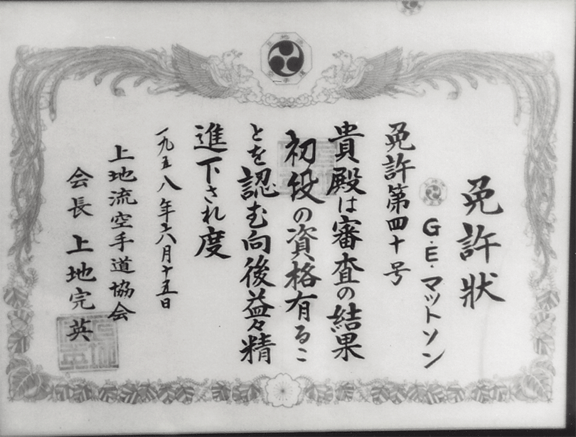 免許状
G・E・マットソン
免許第四十号
貴殿は審査の結果
初段の資格有るこ
とを認む向後益々精
進下され度
一九五八年六月十五日
上地流空手道協会
会長 上地完英